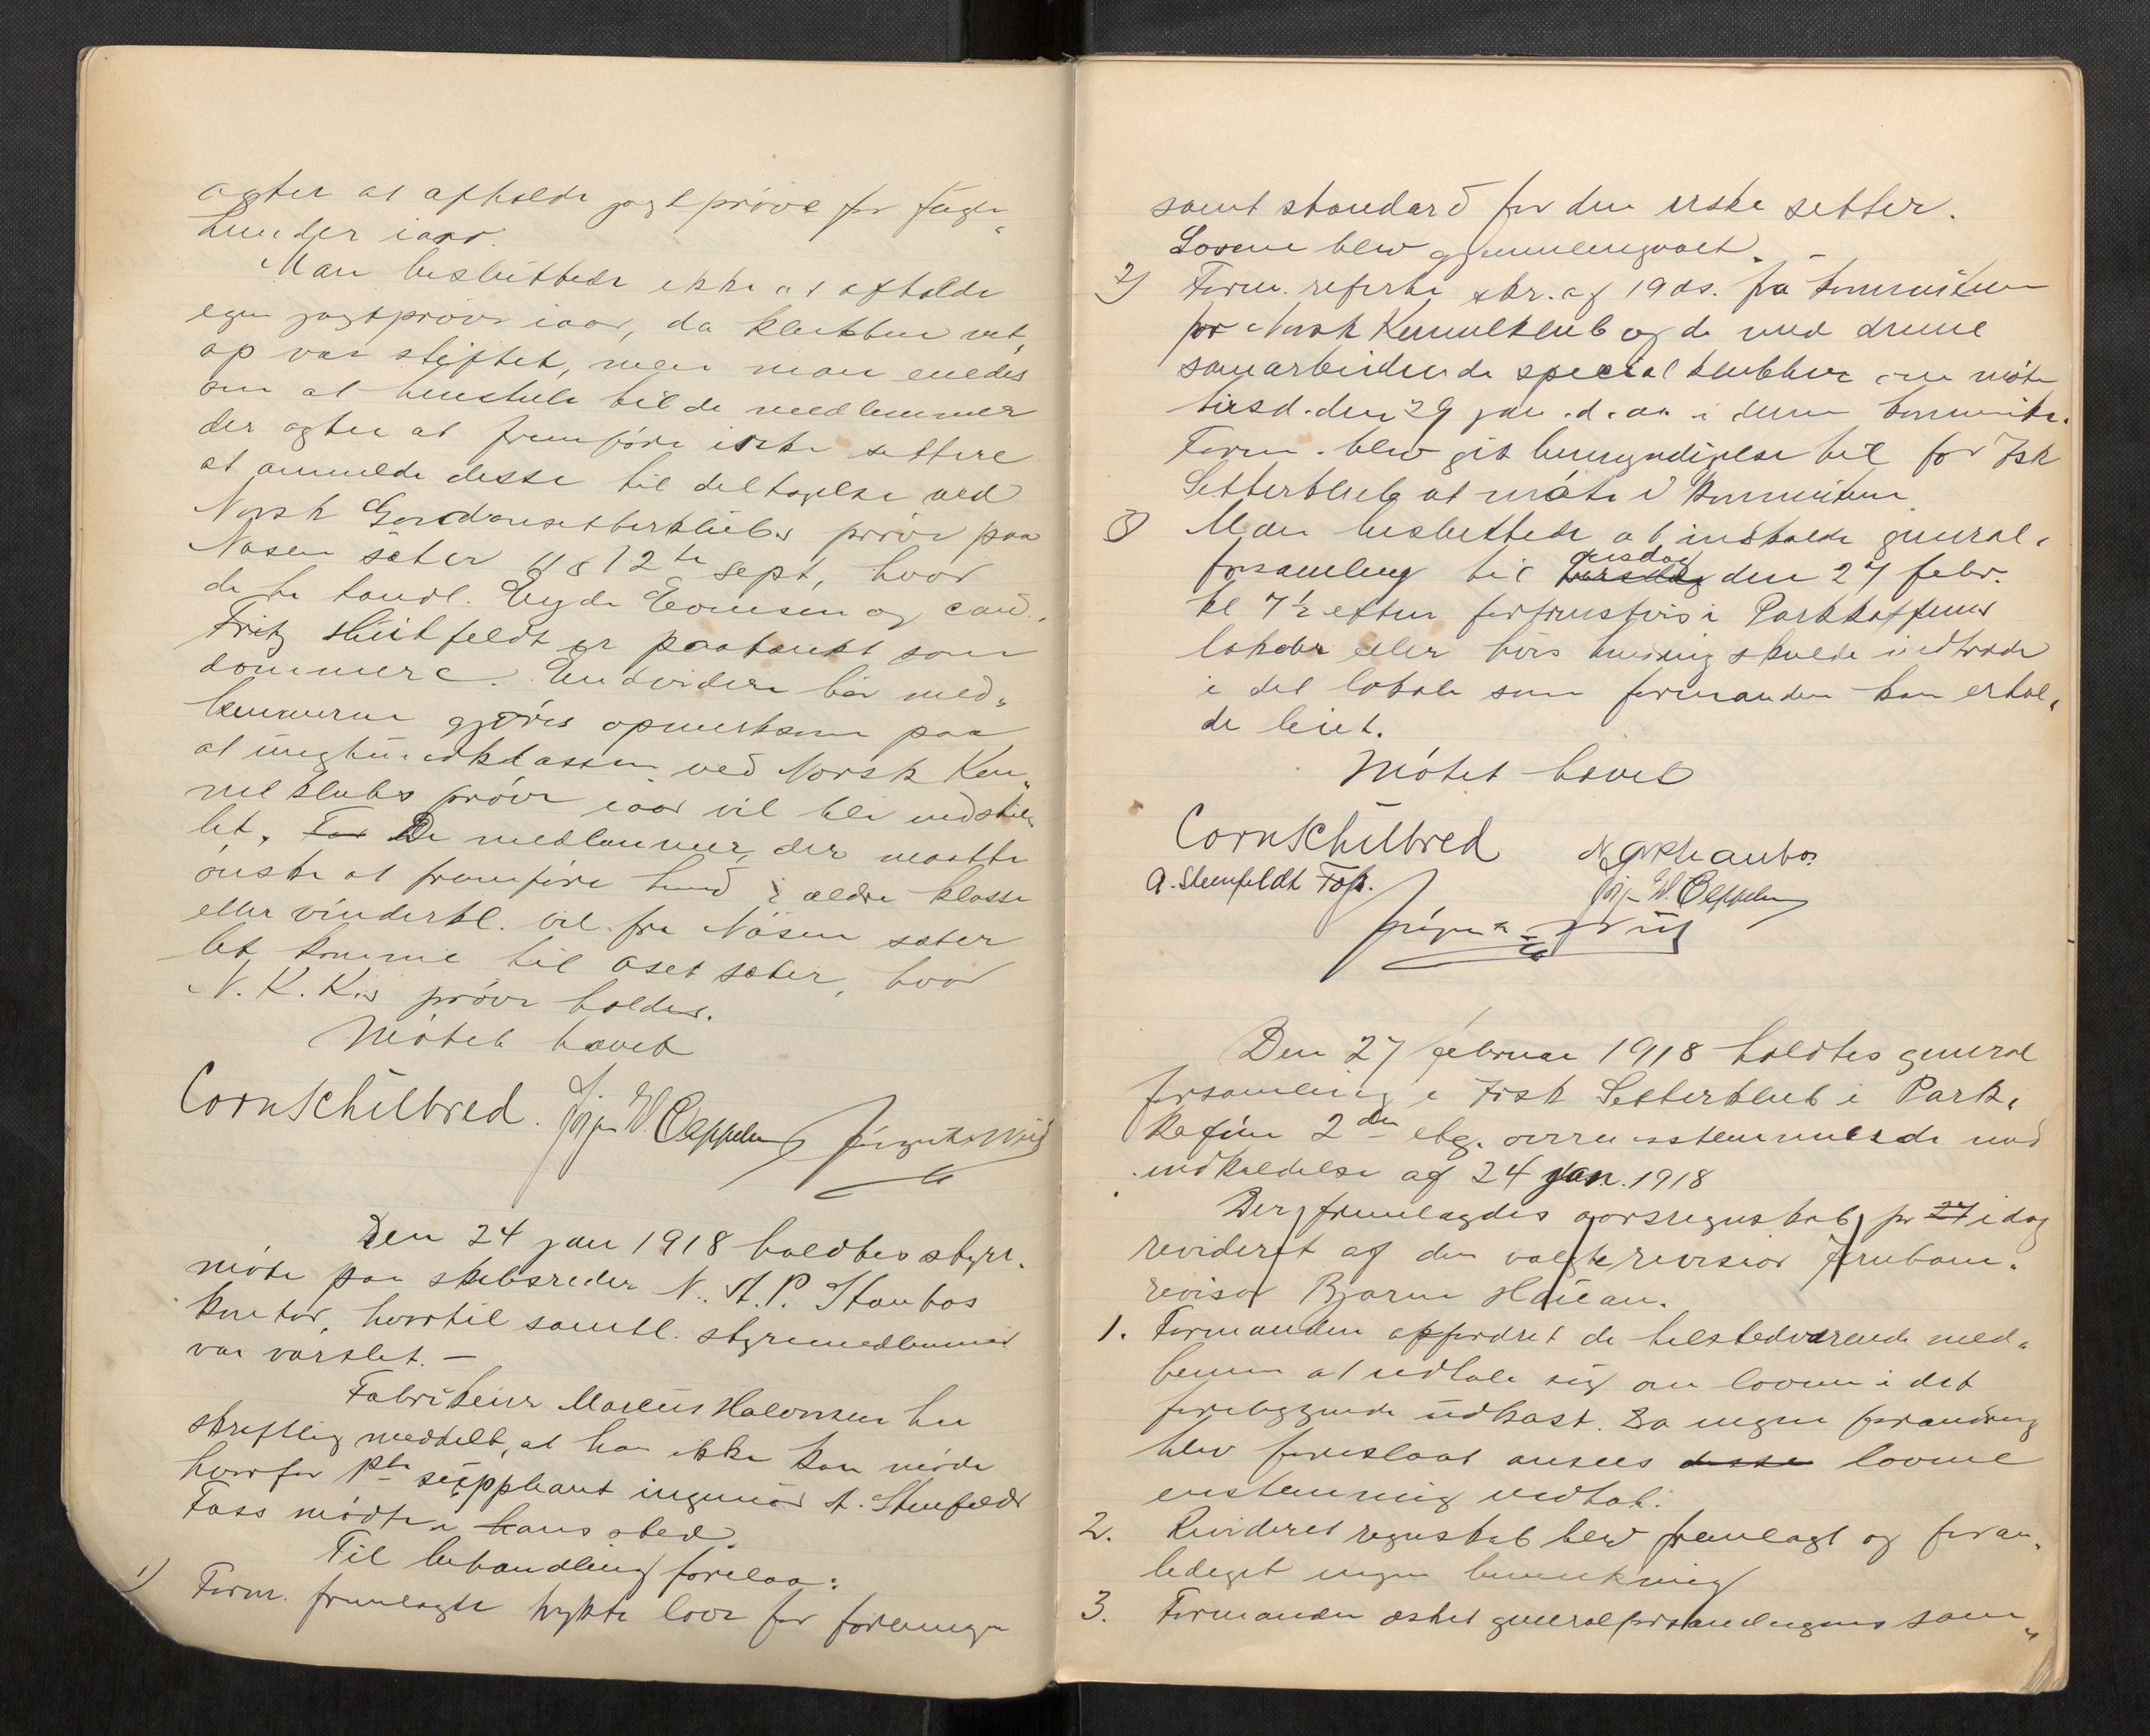 agter at afholde jagtprøve for fugle„
hunder iaar.
Man besluttede ikke at afholde
egen jagtprøve iaar, da klubben net„
op var stiftet, men man enedes
om at henstille til de medlemmer
der agter at fremføre irske settere
at anmelde disse til deltagelse ved
Norsk Gordonsetterklubs prøve paa
Nosen sæter 11 & 12te sept, hvor
de hr landl. Eyde Eoversen og cand.
Fritz Huitfeldt er paatænkt som
dommere. Endvidere bør med„
lemmerne gjøres opmerksom paa
at unghundklassen ved Norsk Ken„
nel klubs prøve iaar vil bli indstil„
let. For De medlemmer, der maatte
ønske at fremføre hund i ældre klasse
eller vinderkl. vil fra Nosen sæter
let komme til Aset sæter, hvor
N. K. K.s prøve holdes.
Møtet hævet
Corn Schilbred. Jørgen W. Cappelen
Den 24 jan 1918 holdtes styre„
møte paa skibsreder N. A. P. Staubos
kontor, hvortil samtl. styremedlemmer
var varslet. —
Fabrikeier Marius Halvorsen har
skriftlig meddelt, at han ikke kan møde
hvorfor 1ste suppleant ingeniør A. Steenfeldt
Foss mødte i hans sted.
Til behandling forelaa:
1) Form. fremlagte trykte love for foreningen
samt standard for den irske setter.
Lovene blev gjennemgaaet.
2) Form. referte skr. af 19 ds. fra kommiteen
for Norsk Kennelklub og de med denne
samarbeidende specialklubber om møte
tirsd. den 29 jan. d. aa. i denne kommite.
Form. blev git bemyndigelse til for Irsk
Setterklub at møte i kommiteen.
3) Man besluttede at indkalde general„
forsamling til tirsdag onsdag den 27 febr.
kl 7½ eftm fortrinsvis i Parkkafeens
lokaler eller hvis hindring skulde indtræde
i det lokale som formanden kan erhol„
de leiet.
Møtet hævet
Corn Schilbred N. A. P. Staubo
A. Steenfeldt Foss. Jørgen W. Cappelen
Den 27 februar 1918 holdtes general
forsamling i Irsk Setterklub i Park„
kafeen 2den etg. overensstemmende med
indkaldelse af 24 jan. 1918
Der fremlagdes aarsregnskab pr 27 idag
revideret af den valgte revisor Jernbane„
revisor Bjarne Hauan.
1. Formanden opfordret de tilstedværende med„
lemmer at udtale sig om lovene i det
foreliggende udkast. Da ingen forandring
blev foreslaat ansees disse lovene
enstemmig vedtat.
2. Revideret regnskab blev fremlagt og foran„
lediget ingen bemerkning
3. Formanden æsket generalforsamlingens sam„